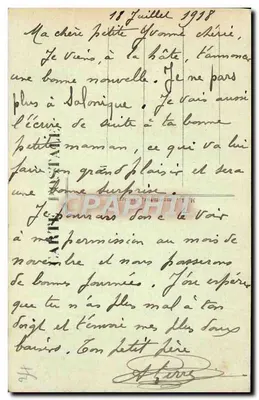 18 Juillet 1918
Ma chère petite Yvonne chérie,
Je viens, à la hâte, t'annoncer
une bonne nouvelle. Je ne pars
plus à Salonique. Je vais aussi
l'écrire de suite à ta bonne
petite maman, ce qui va lui
faire un grand plaisir et sera
une bonne surprise.
Je pourrais donc te voir
à ma permission au mois de
novembre et nous passerons
de bonnes journées. J'ose espérer
que tu n'as plus mal à ton
doigt et t'envoie mes plus doux
baisers. Ton petit père
CARTE POSTALE
CPAPHIL